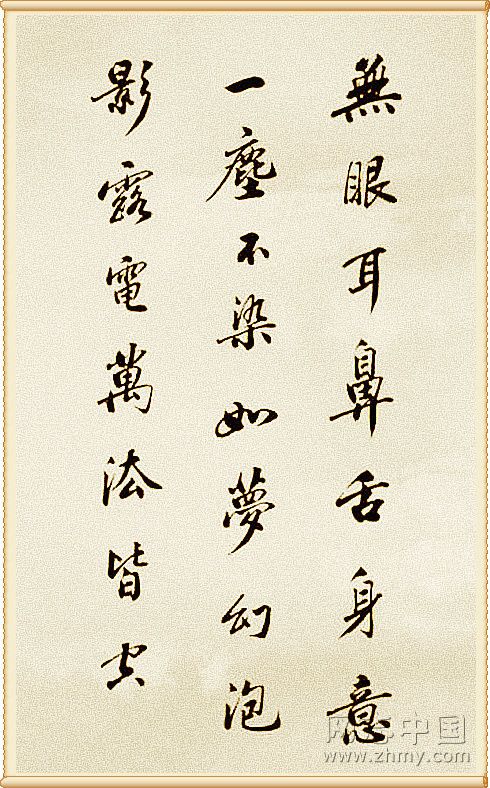 無眼耳鼻舌身意
一塵不染如夢幻泡
影露電萬法皆空
中国
www.zhmy.com